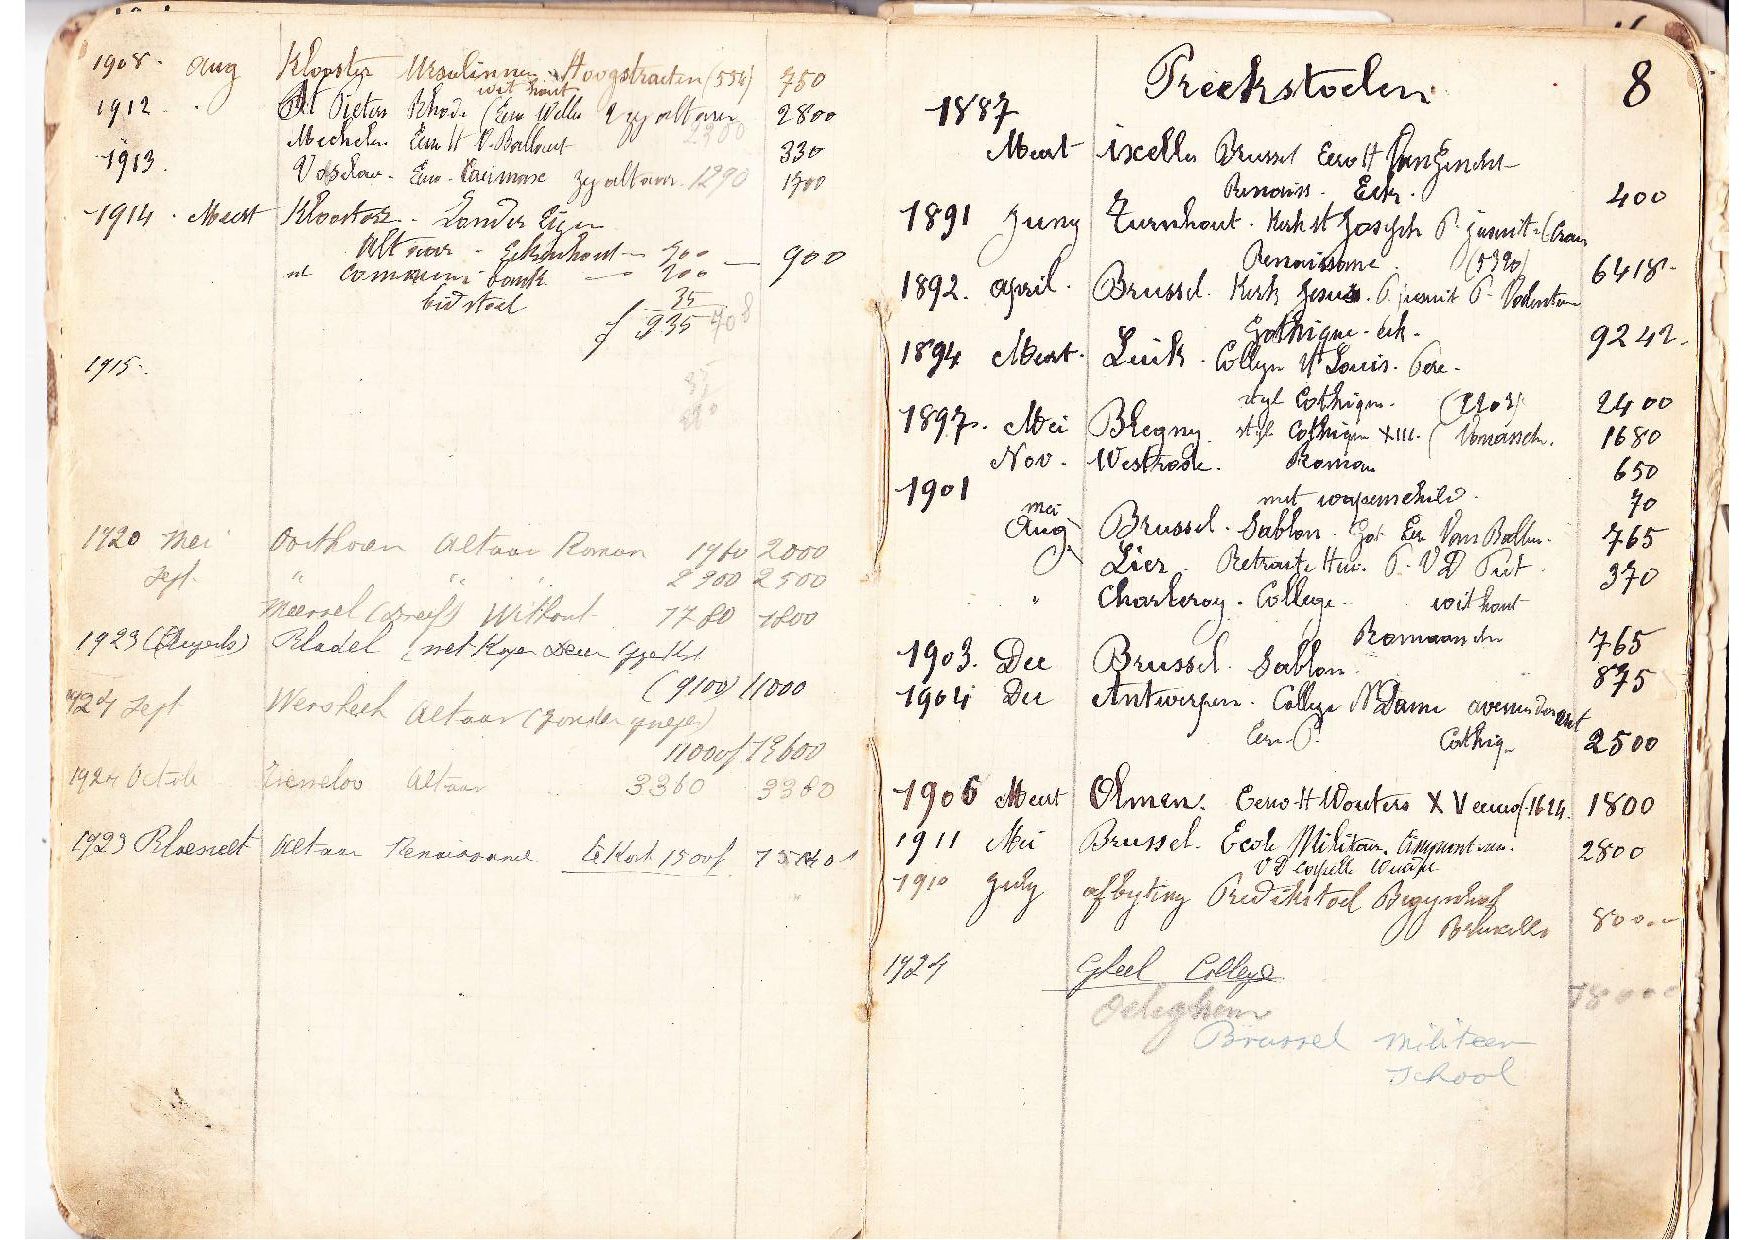 1908. Aug Klooster Ursulinnen Hoogstraeten (556) 750
wit hout
1912 St Pieters Rhode (Eerw Wellen 2 zy altaren 2800
2300
Mechelen Eerw H V. Ballaert 330
1913. Vosselaar. Eerw. zy altaar. 1290 1700
1914. Meert Klooster.
Altaar - Eekenhout 700 — 900
communi bank — 200
bidstoel 35
f 935 708
1915.
35
1920 Mei Oosthoven Altaar Roman 1960 2000
Sept. " " " 2900 2500
Meersel (Dreef) Without 1780 1800
1923 Bladel
(9100) 11000
1924 Sept Altaar (zonder
11000f 13600
1924 Octob Altaar 3360 3360
1923 Altaar Renaissance te kort 1500f 75
Preekstoelen 8
1887
Meert ixelles Brussel Eerw H Van Gendt
Renaiss. Eek. 400
1891 Juny Turnhout. Kerk St Joseph P. jesuit
Renaissance (5390) 6418-
1892. april. Brussel. Kerk Jesus. P. jesuit P.
Gothique. eik. 9242-
1894 Meert. Luik. College St Louis. Pere.
styl Gothique. (2203) 2400
1897. Mei Blegny. styl Gothique XIII. 1680
Nov. Westrode. Roman 650
1901 met wapenschild. 70
mei
Aug Brussel. Sablon. Got. Eer Van Ballen. 765
Lier. Retraite Huis. P. V D Put. 370
" Charleroy. College. wit hout
Romaansche 765
1903. Dec Brussel. Sablon. 875
1904 Dec Antwerpen. College N Dame avenue
Eerw P. Gothiq 2500
1906 Meert Olmen. Eerw H Wouters X V eeuw (1624 1800
1911 Mei Brussel. Ecole Militair. 2800
V D Capelle
1910 July afbyting Predikstoel Begynhof
Bruxelles 8000-
1924 Gheel College
Oeleghem 18000
Brussel Militeer
School